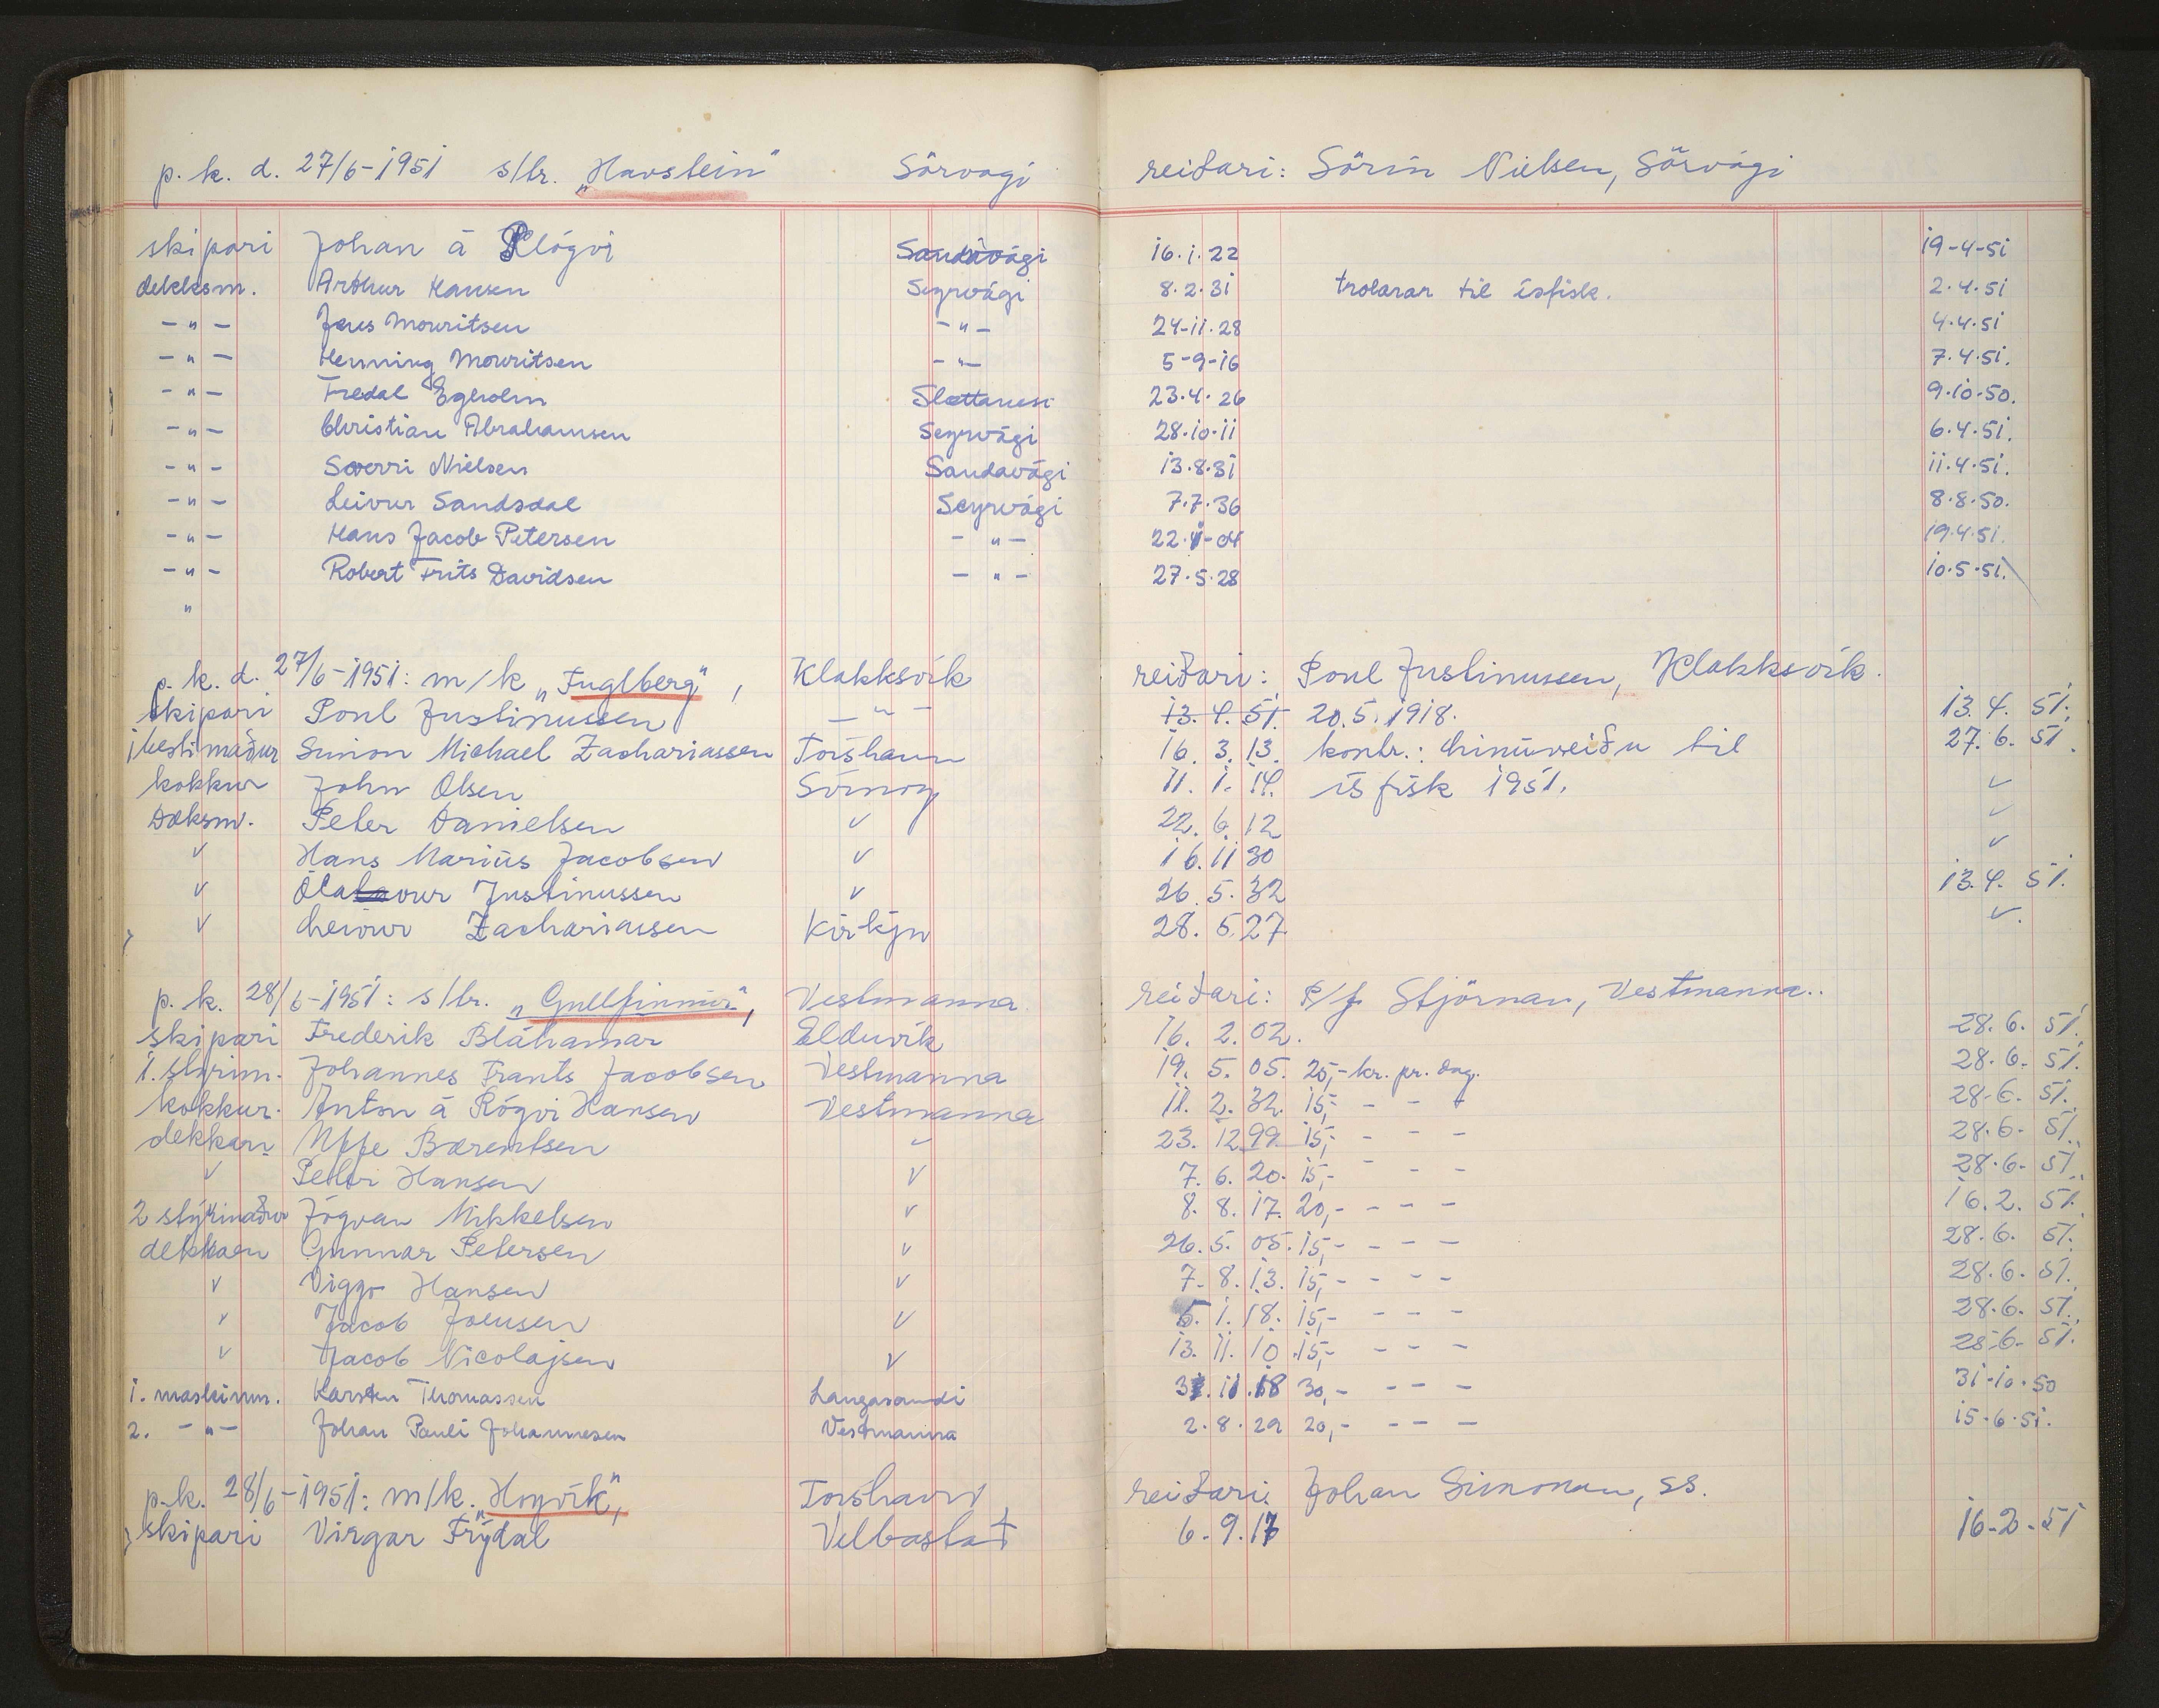 p. k. d. 27/6-1951 s/tr. „Havstein" Sörvagi reiðari: Sörin Nielsen, Sörvági
skipari Johan á Plógvi Sandavági 16.1.22 19-4-51
dekksm. Arthur Hansen Seyrvági 8.2.31 trolarar til ísfisk. 2.4.51
-"- Jens Mouritsen -"- 24-11.28 4.4.51
-"- Henning Mouritsen -"- 5-9-16 7.4.51.
-"- Fredal Egholm Slættanesi 23.4.26 9.10.50.
-"- Christian Abrahamsen Seyrvági 28.10.11 6.4.51.
-"- Sverri Nielsen Sandavági 13.8.31 11.4.51.
-"- Leivur Sandsdal Seyrvági 7.7.36 8.8.50.
-"- Hans Jacob Petersen -"- 22. -04 19.4.51.
-"- Robert Frits Davidsen -"- 27.5.28 10.5.51.
"
p. k. d. 27/6-1951: m/k „Fuglberg", Klakksvík reiðari: Poul Justinussen, Klakksvík.
skipari Poul Justinussen -"- 13.4.51. 20.5.1918. 13.4.51.
ibestimaður Simon Michael Zachariassen Torshavn 16.3.13. kontr.: hinúveiðu til 27.6.51.
kokkur John Olsen Sörnoy 11.1.14. ís fisk 1951. ✓
Dæksm. Peter Danielsen ✓ 22.6.12 ✓
✓ Hans Mariús Jacobsen ✓ 16.11 30 ✓
✓ Ólavur Justinussen ✓ 26.5.32 13.4.51.
✓ Leivur Zachariassen Kirkju 28.5.27. ✓.
p. k. 28/6-1951: s/tr. „Gullfinnur", Vestmanna reiðari: P/f Stjörnan, Vestmanna..
skipari Frederik Bláhamar Elduvík 16.2.02. 28.6.51.
1. stýrim. Johannes Frants Jacobsen Vestmanna 19.5.05. 25,- kr. pr. dag. 28.6.51.
kokkur. Anton á Rógvi Hansen Vestmanna 11.2.32. 15,- - - - 28.6.51.
dekkan Uffe Bærentsen ✓ 23.12 99. 15,- - - - 28.6.51.
✓ Petur Hansen ✓ 7.6.20. 15,- - - - 28.6.51.
2 stýrimaður Jógvan Mikkelsen ✓ 8.8.17. 20,- - - - 16.2.51.
dekkaen Gunnar Petersen ✓ 26.5.05. 15,- - - - 28.6.51.
✓ Viggo Hansen ✓ 7.8.13. 15,- - - - 28.6.51.
✓ Jacob Joensen ✓ 6.1.18. 15,- - - - 28.6.51.
✓ Jacob Nicolajsen ✓ 13.11.10 .15,- - - - 28.6.51.
1. maskinm. Karsten Thomassen Langasandi 31.11.18 30,- - - - 31-10.50
2. -"- Johan Pauli Johannesen Vestmanna 2.8.29 20,- - - - 15.6.51.
p.k. 28/6-1951: m/k. „Hoyvík", Torshavn reiðari: Johan Simonsen, ss.
skipari Virgar Frýdal Velbastað 6.9.17 16-2-51